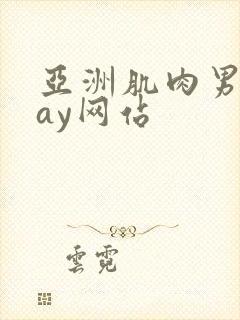 亞洲肌肉男
ay网佔
雲霓